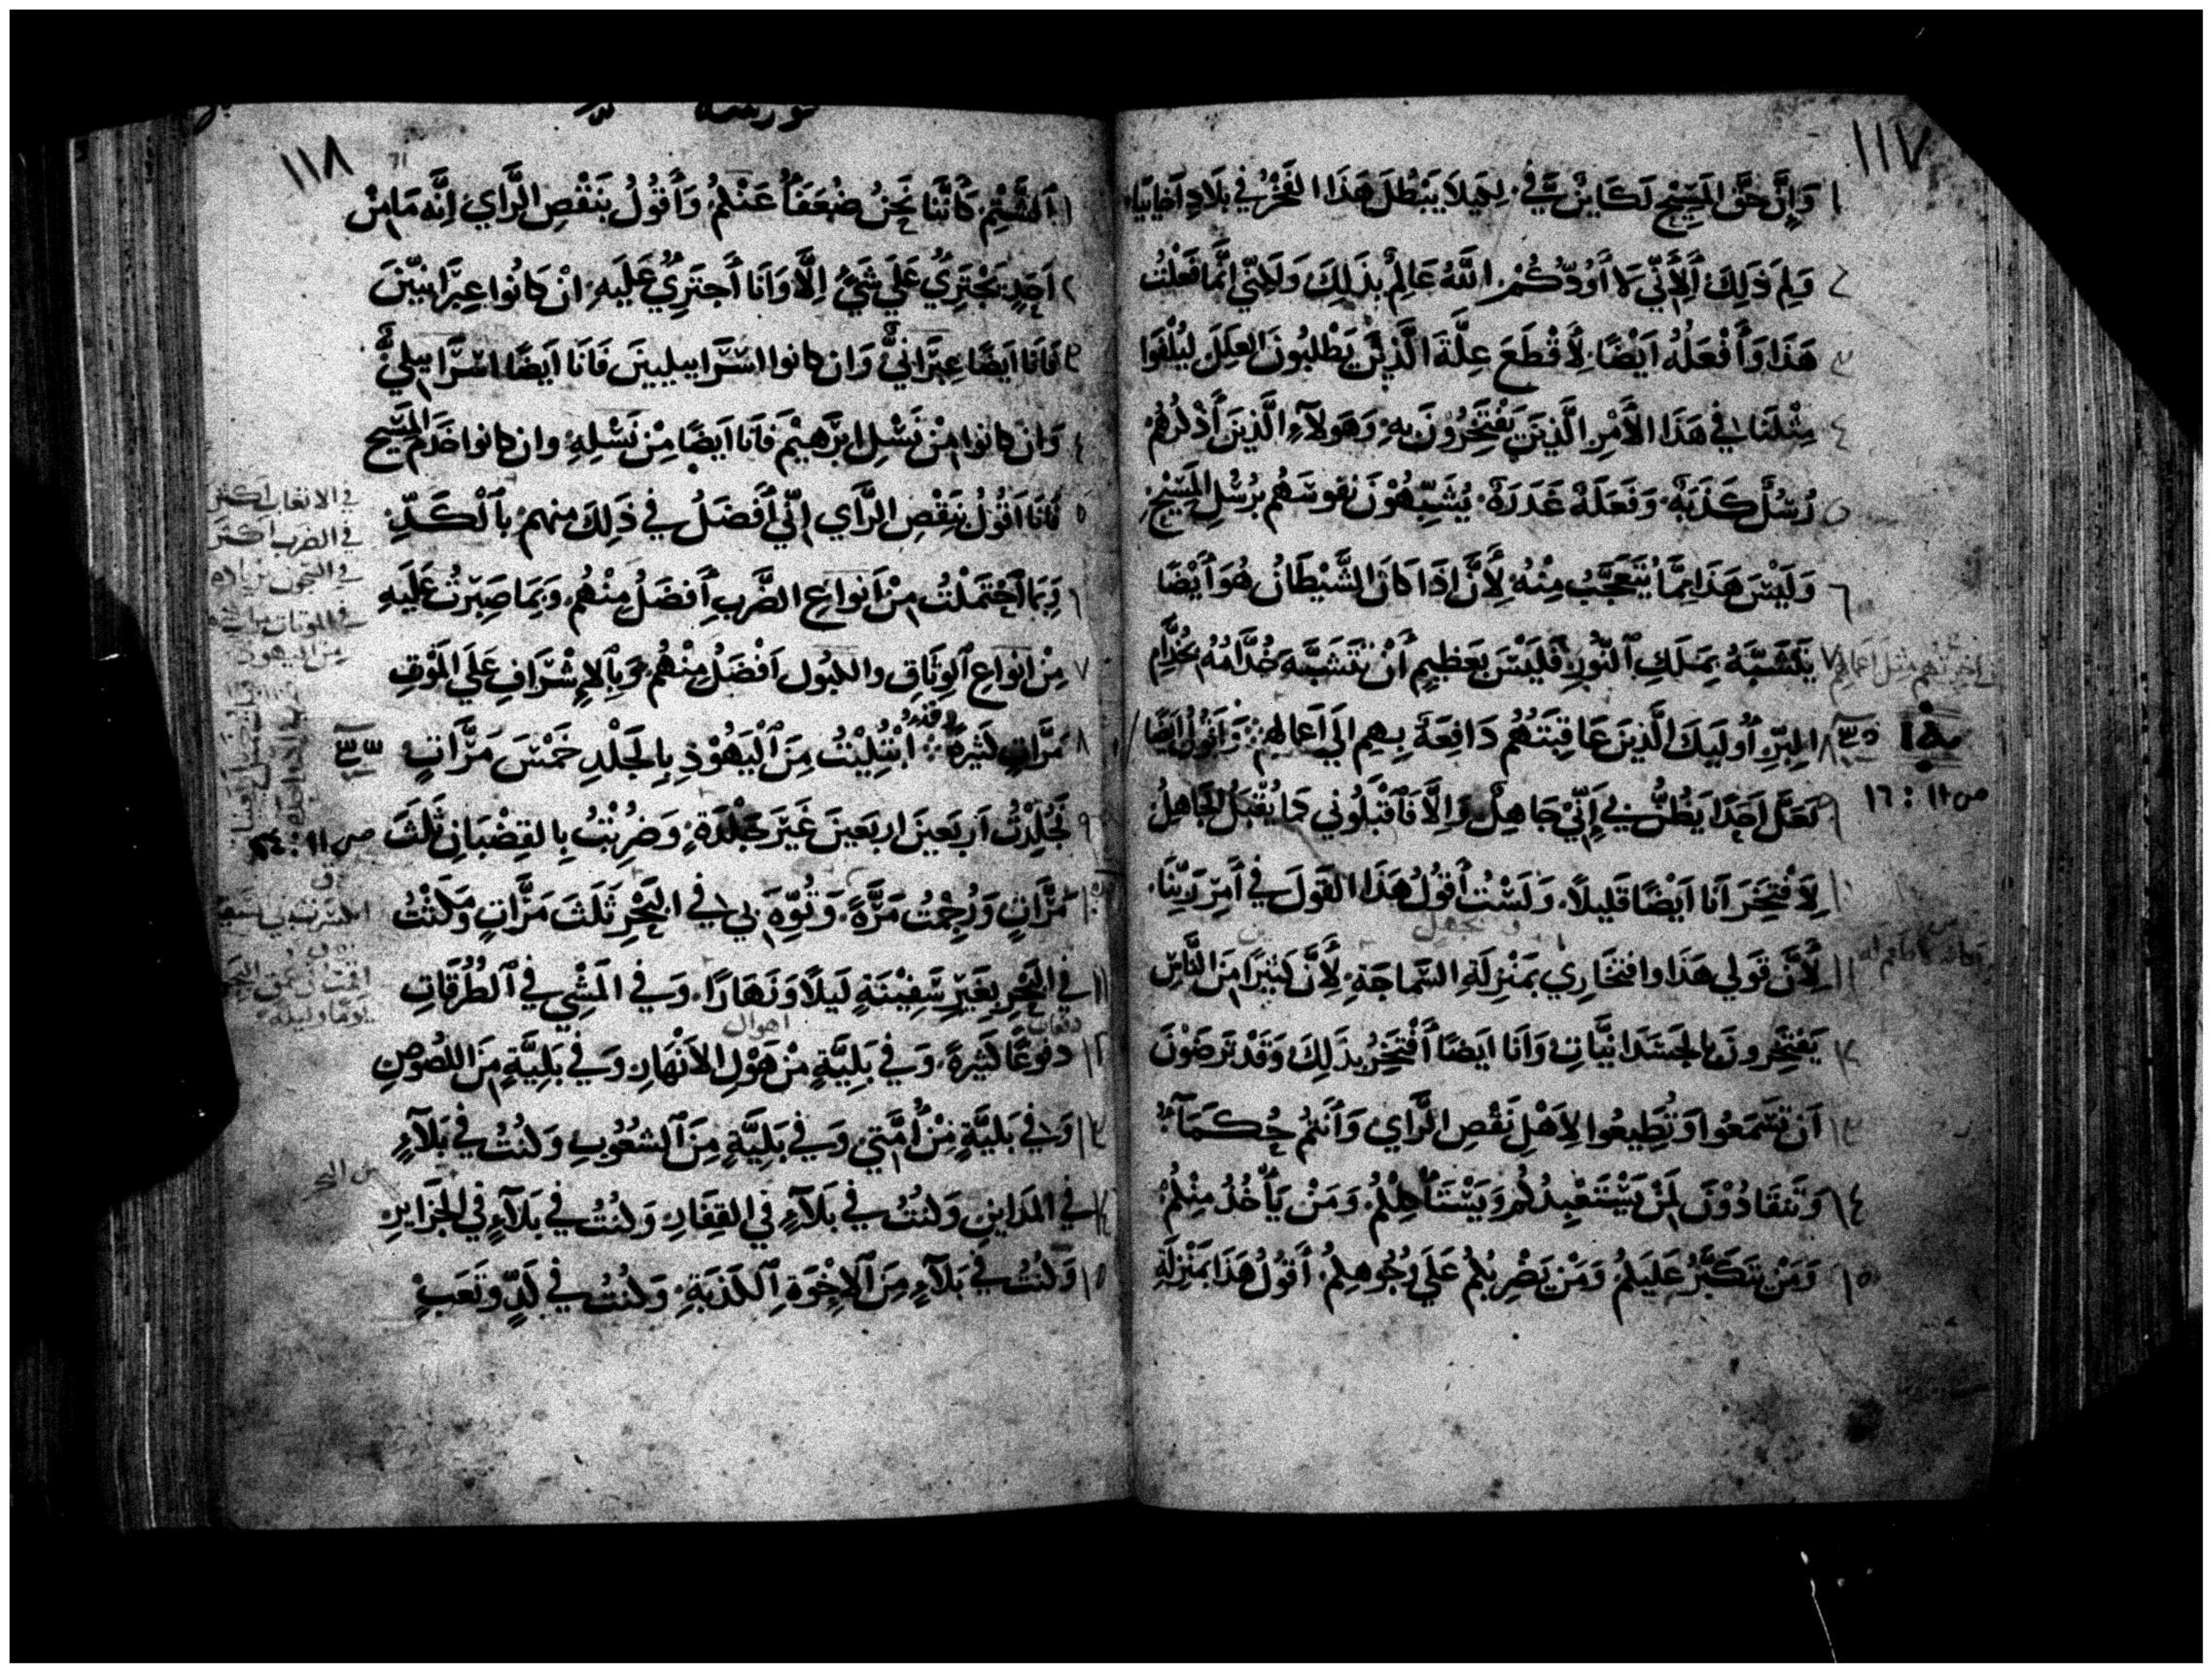 ١١٧
١ وَإِنَّ حَقَّ المَسِيْحِ لَكَايِنٌ فِيَّ. لِكَيلَا يَبْطُلَ هَذَا الفَخْرُ فِي بِلَادِ اَخَايِيَا.
٢ وَلِمَ ذَلِكَ أَلِأَنِّي لَا أَوَدُّكُمْ. اللَّهُ عَالِمٌ بِذَلِكَ وَلَكِنِّي إِنَّمَا فَعَلْتُ
٣ هَذَا وَأَفْعَلُهُ اَيْضًا. لِأَقْطَعَ عِلَّةَ الَّذِيْنَ يَطْلِبُونَ العِلَلَ لِيُلْفَوا
٤ مِثْلَنَا فِي هَذَا الأَمْرِ الَّذِيْنَ يَفْتَخِرُونَ بِهِ. وَهَولَآءِ الَّذِينَ أَذْكُرُهُمْ
٥ رُسُلٌ كَذَبَةٌ. وَفَعَلَةٌ غَدَرَةٌ. يُشَبِّهُوْنَ نُفوسَهُم بِرُسُلِ المَسِيْحِ.
٦ وَلَيْسَ هَذَا مِمَّا يُتَعَجَّبُ مِنْهُ. لِأَنَّ اذَا كَانَ الشَّيْطَانُ هُوَ أَيْضًا
٧ يَتَشَبَّهُ بِمَلَكِ ٱلنُّورِ. فَلَيْسَ بِعَظِيمٍ أَنْ تَتَشَبَّهَ خُدَّامُهُ بِخُدَّامِ
٨ البِرِّ أُولَيِكَ الَّذِينَ عَاقِبَتَهُمْ دَافِعَةٌ بِهِم الَي اَعمَالِهِم. وَأَقُولُ ايضًا
ص ١١ : ١٦
٩ لَعَلَّ اَحَدًا يَظُنُّ بِي إِنِّي جَاهِلٌ وَإِلَّا فَاَقْبَلُونِي كَمَا يُقْبَلُ الجَاهِلُ
١٠ لِأَفْتَخِرَ اَنَا اَيْضًا قَلِيلًا. وَلَسْتُ أَقُولُ هَذَا القَولَ فِي أَمِرِ رَبِّنَا.
١١ لِأَنَّ قَولي هَذَا وافتخَارِي بِمَنْزِلَةِ السَّمَاجَةِ. لِأَنَّ كَثِيرًا مِنَ النَّاسِ
١٢ يَفتَخِرونَ بِالجَسَدَانِيَّاتِ وَأَنَا ايَضًا أَفْتَخِرُ بِذَلِكَ وَقَدْ تَرضَوْنَ
١٣ اَن تَسْمَعُوا وَتُطِيعُوا لِاَهْلِ نَقْصِ الرَّاي وَاَنتُم حُكَمَآءُ
١٤ وَتَنقَادُوْنَ لِمَنْ يَسْتَعْبِدُكُمْ وَيَسْتَاكِلُكُمْ. وَمَنْ يَأْخُذُ مِنْكُمْ
١٥ وَمَنْ يَتَكَبَّرُ عَلَيكُمْ وَمَنْ يَضْرِبُكُمْ عَلَي وُجُوهِكُمْ. أَقُولُ هَذَا بِمَنْزِلَةِ
١١٨
١ ٱلشَّتْمِ. كَأَنَّنَا نَحْنُ ضُعَفَآءُ عَنْكُمْ وَأَقُولُ بِنَقْصِ الرَّاي اِنَّه مَا مِنْ
٢ اَحَدٍ يَجْتَرِيُ عَلَي شَيءٍ اِلَّا وَاَنَا أَجتَرِيُ عَلَيهِ. انْ كَانُوا عِبْرَانِيّينَ
٣ فَاَنَا ايَضًا عِبْرَانِيٌّ وَان كانوا اسْرَاييلِيينَ فَاَنَا اَيضًا اسْرَاييلِيٌّ
٤ وَان كانوا مِنْ نَسْلِ ابرَهِيْمَ فَاَنَا ايَضًا مِنْ نَسْلِهِ. وان كانوا خَدَمَ المَسِيْحِ
٥ فَاَنَا اَقُولُ بِنَقْصِ الرَّأي اِنّي أَفْضَلُ فِي ذَلِكَ منهم. بِٱلْكَدِّ
٦ وَبِمَا ٱحْتَمَلْتُ مِنْ اَنوَاعِ الضَّربِ أَفْضَلُ مِنْهُم. وَبِمَا صَبِرْتُ عَلَيهِ
٧ مِنْ انوَاعِ ٱلوِثَاقِ والكبُول اَفْضَلُ مِنْهُم. وَبِٱلإِشْرَافِ عَلَي المَوْتِ
وقد
٨ مَرَّاتٍ كَثِيرةً. ابْتُلِيْتُ مِنَ ٱلْيَهُوْدِ بِالجَلْدِ خَمْسَ مَرَّاتٍ
٩ فَجُلِدْتُ اَربَعِينَ اربَعِينَ غَيْرَ جَلْدَةٍ. وَضُرِبْتُ بِالقِضْبَانِ ثَلَثَ
ص ١١ : ٢٤
١٠ مَرَّاتٍ وَرُجِمْتُ مَرَّةً. وَتُوِّهَ بِي فِي البَحْرِ ثَلَثَ مَرَّاتٍ وَمَكَثْتُ
١١ فِي البَحْرِ بِغَيْرِ سَفِيْنَةٍ لَيلًا وَنَهَارًا. وَفِي المَشْي فِي ٱلطُرُقَاتِ
دفعات اهوال
١٢ دفُوعًا كَثِيرةً. وَفِي بَلِيَّةٍ مِنْ هَوْلِ الاَنْهَارِ وَفِي بَلِيَّةٍ مِنَ اللُصُوصِ
١٣ وَفِي بَلِيَّةٍ مِنْ أُمَّتِي وَفِي بَلِيَّةٍ مِنَ ٱلشعُوبِ وَكنْتُ فِي بَلَآءٍ
١٤ فِي المَدَاينِ وَكنْتُ فِي بَلَآءٍ فِي القِفَارِ. وَكنْتُ فِي بَلَآءٍ فِي الجَزَايِرِ
من البحر
١٥ وَكنْتُ فِي بَلَآءٍ مِنَ ٱلاِخْوَةِ ٱلكَذبَةِ. وَكنْتُ فِي كَدٍّ وَتَعَبٍ
في الاتعاب اكثر
في الضرب اكثر
في السجون بزياده
من اليهود
يوما وليله